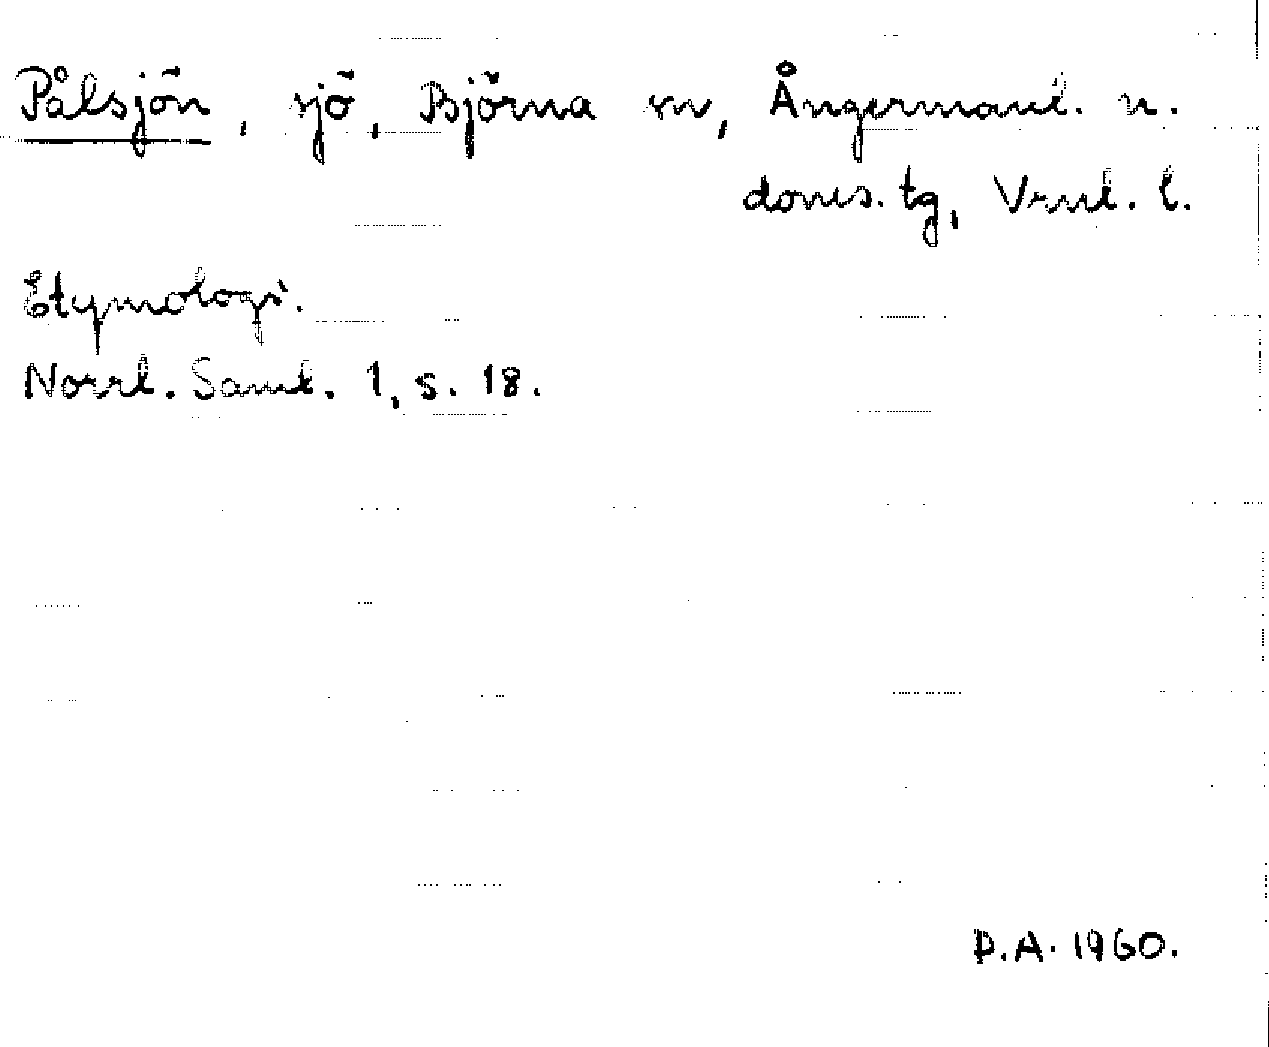 Pålsjön, sjö, Björna sn, Ångermanl. n.
doms. tg, Vrnl. l.
Etymologi.
Norrl. Saml. 1, s. 18.
D.A. 1960.